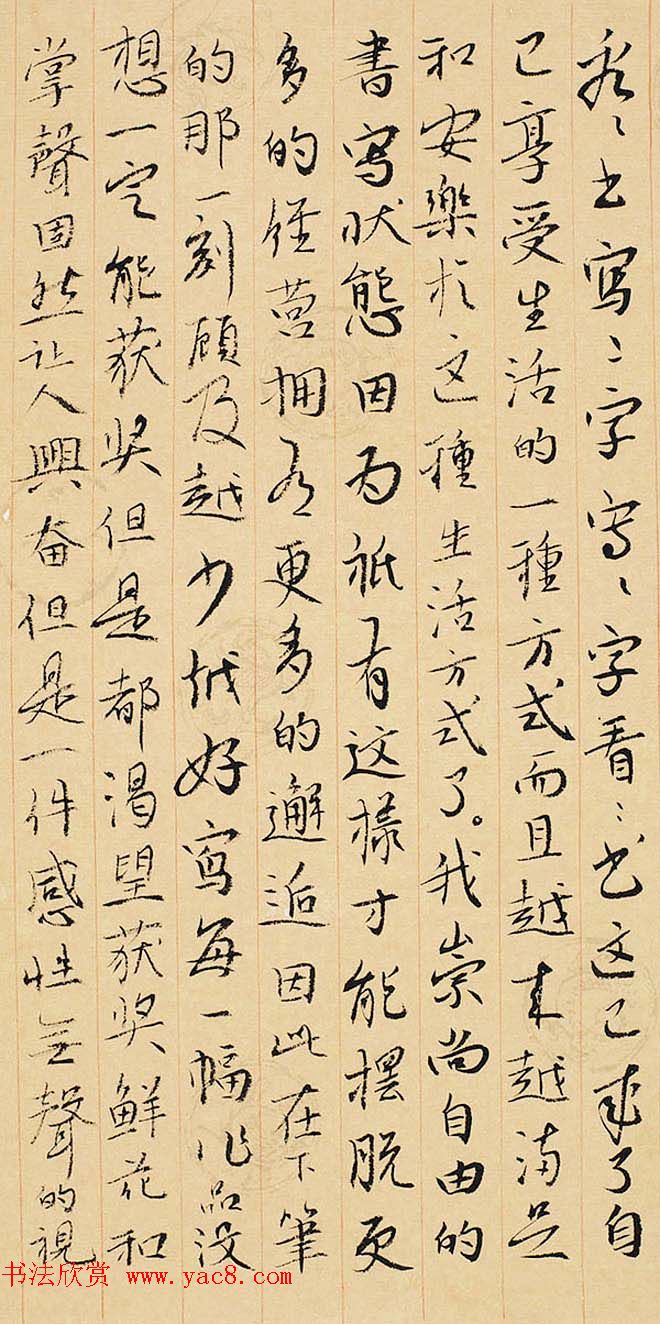 看々书寫々字寫々字看々书这已成了自
己享受生活的一種方式而且越来越满足
和安樂於这種生活方式了。我崇尚自由的
書寫状態因为祇有这樣才能摆脱更
多的经营拥有更多的邂逅因此在下筆
的那一刻顾及越少越好寫每一幅作品没
想一定能获奖但是都渴望获奖鲜花和
掌聲固然让人興奋但是一件感性無聲的視
书法欣赏 www.yac8.com